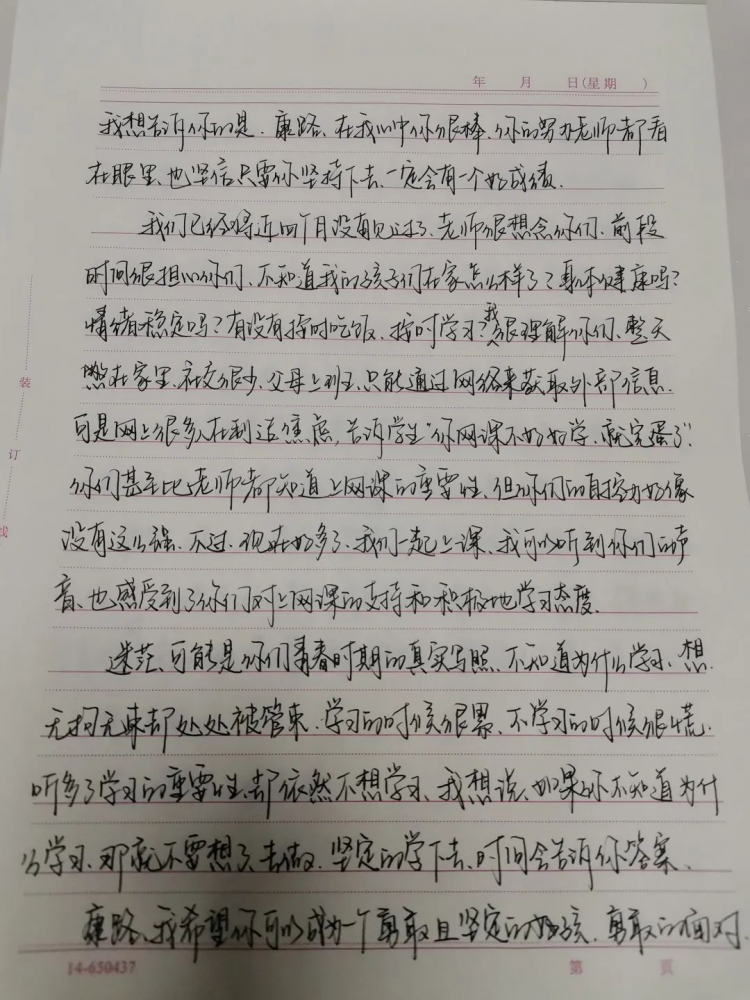 年 月 日(星期 )
我想告诉你的是、康路、在我心中你很棒、你的努力老师都看
在眼里、也坚信只要你坚持下去、一定会有一个好成绩、
我们已经将近四个月没有见过了、老师很想念你们、前段
时间很担心你们、不知道我的孩子们在家怎么样了？身体健康吗？
情绪稳定吗？有没有按时吃饭、按时学习？我很理解你们、整天
憋在家里、社交很少、父母上班、只能通过网络来获取外部信息、
可是网上很多人在制造焦虑，告诉学生“你网课不好好学，就完蛋了”
你们甚至比老师都知道上网课的重要性、但你们的自控力好像
没有这么强、不过、现在好多了、我们一起上课、我可以听到你们的声
音、也感受到了你们对上网课的支持和积极地学习态度、
迷茫、可能是你们青春时期的真实写照、不知道为什么学习、想
无拘无束却处处被管束、学习的时候很累、不学习的时候很慌、
听多了学习的重要性、却依然不想学习、我想说、如果你不知道为什
么学习、那就不要想了、去做、坚定的学下去、时间会告诉你答案、
康路、我希望你可以成为一个勇敢且坚定的好孩、勇敢的面对、
14-650437 第 页
装
订
线